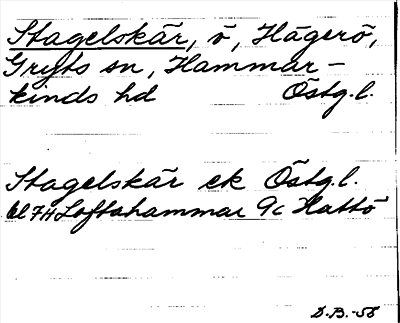 Stagelskär, ö, Hägerö,
Gryts sn, Hammar-
kinds hd Östg.l.
Stagelskär ek Östg.l.
bl 7H Loftahammar 9c Kattö
D.B.-56